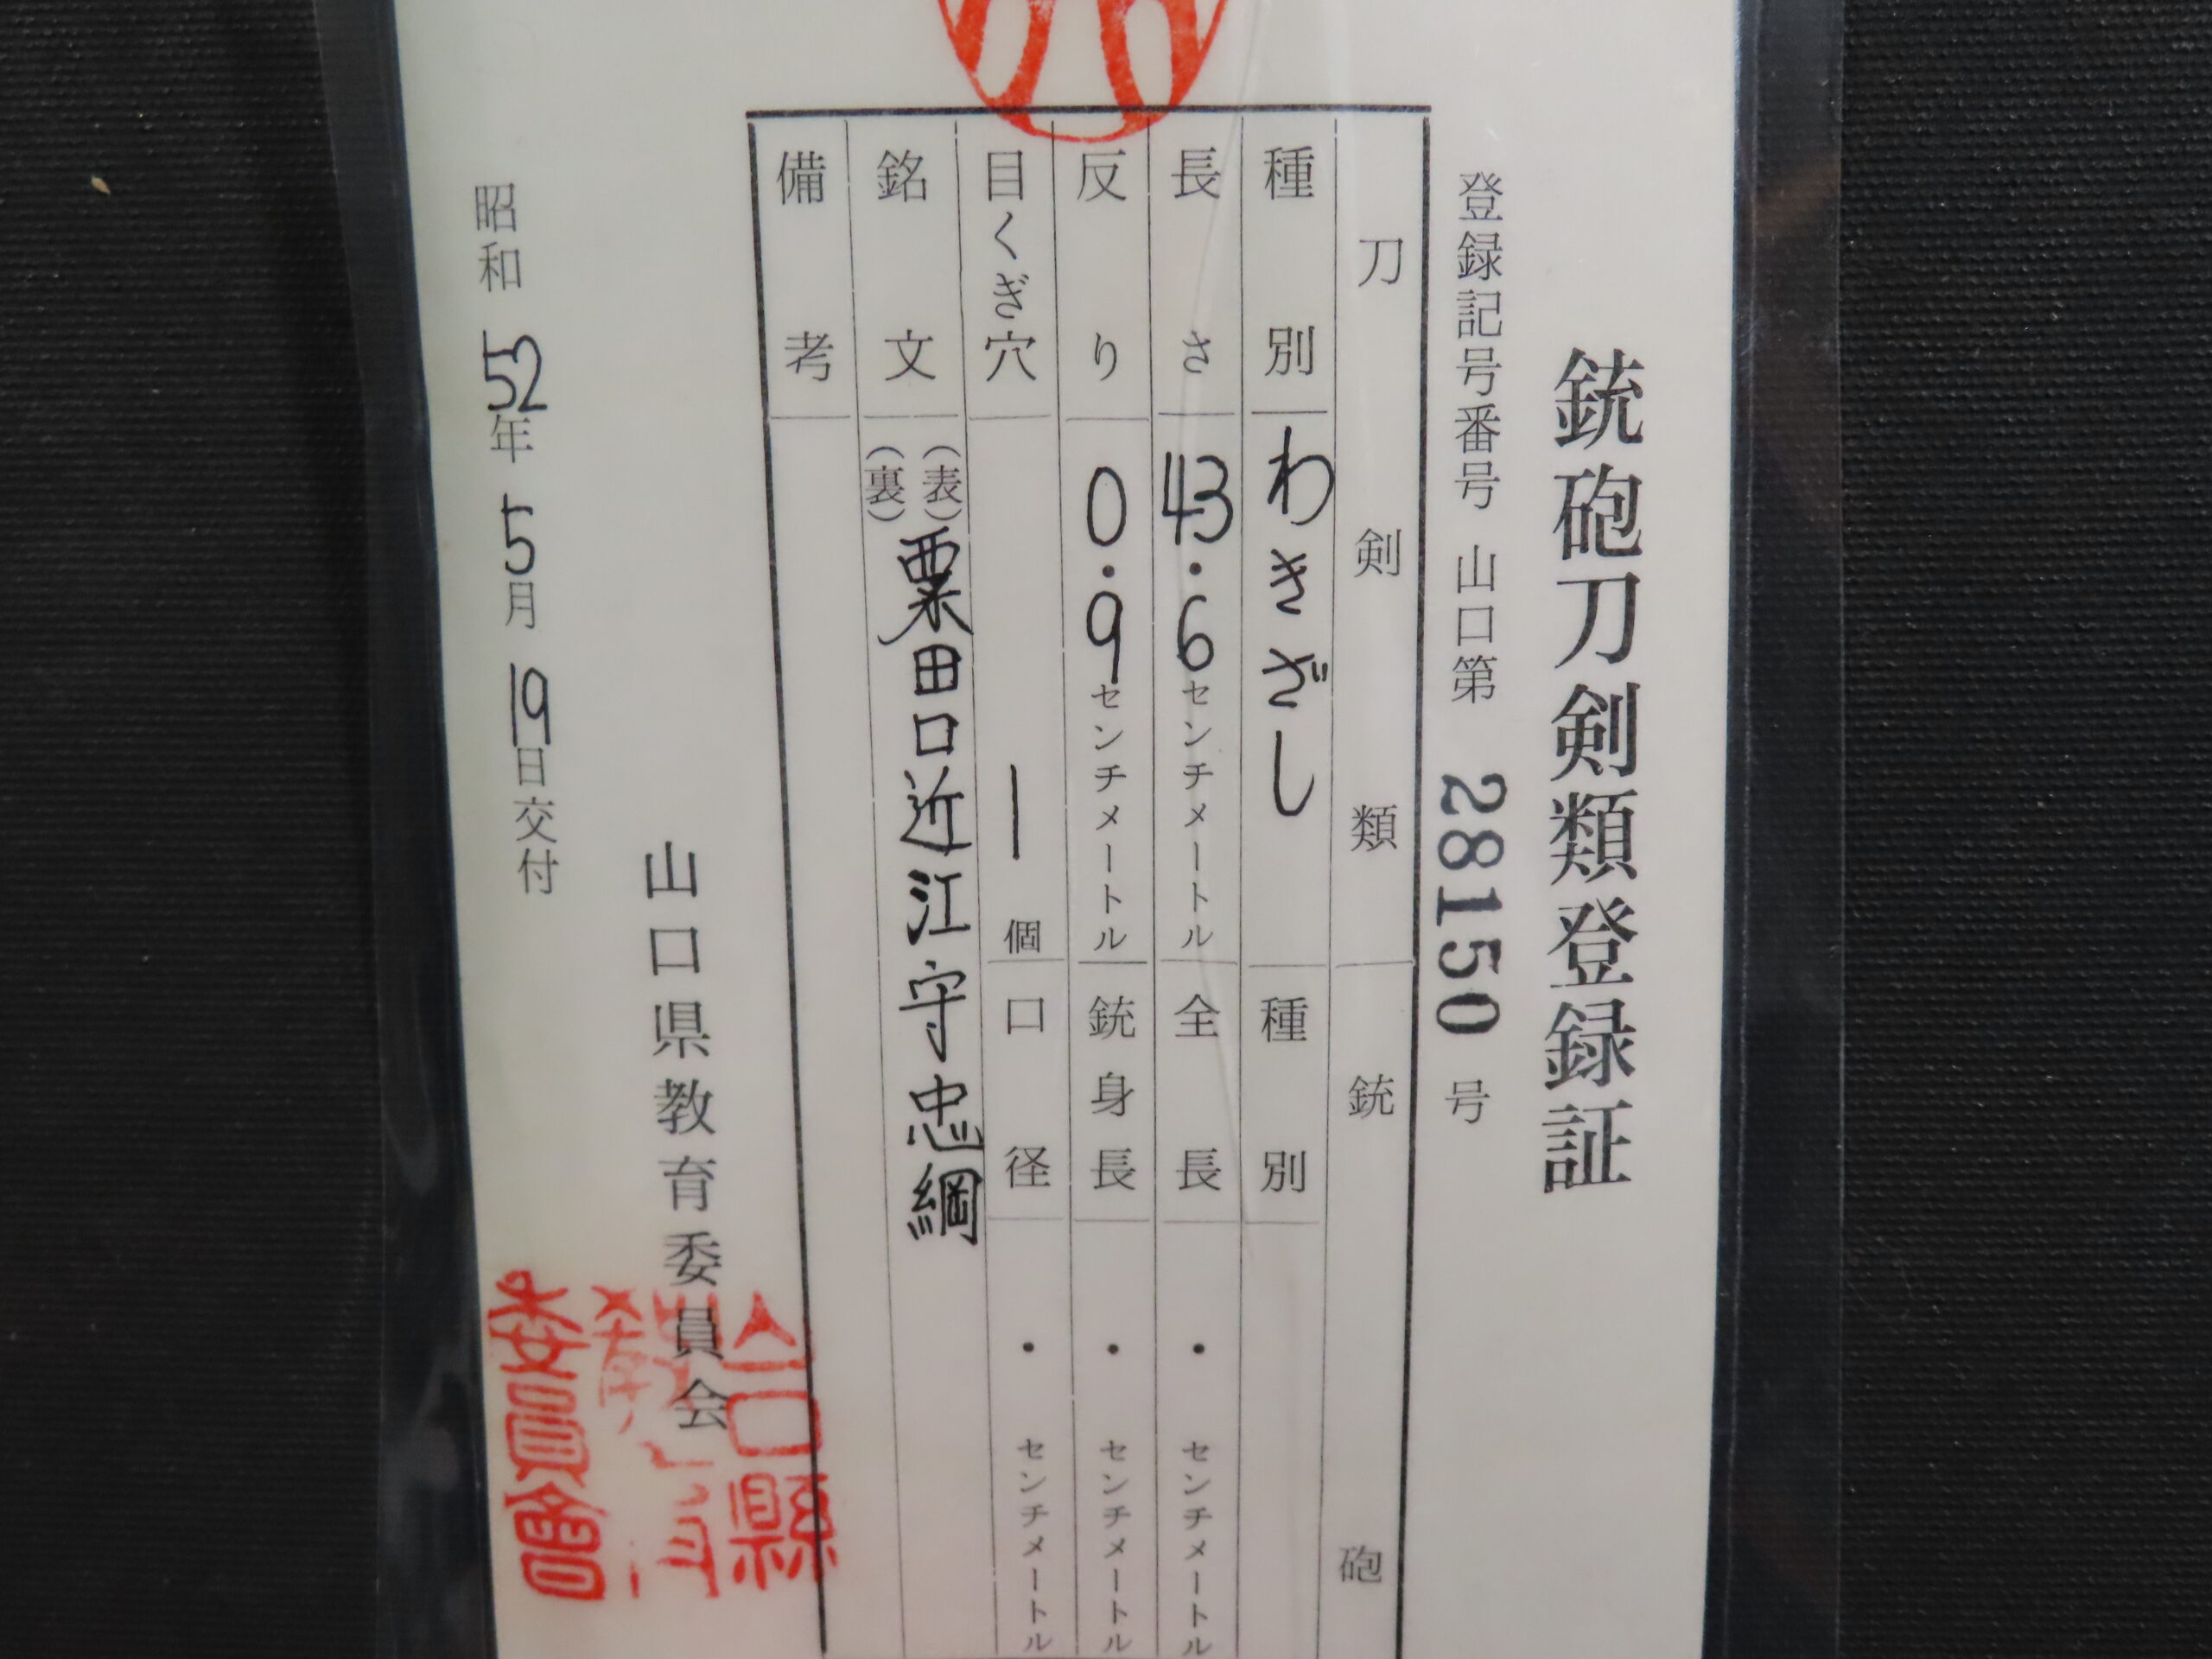 銃砲刀剣類登録証
登録記号番号 山口第 28150 号
刀剣類 銃砲
種別 わきざし 種別
長さ 43.6センチメートル 全長 ・ センチメートル
反り 0.9センチメートル 銃身長 ・ センチメートル
目くぎ穴 1個 口径 ・ センチメートル
銘文 (表) 粟田口近江守忠綱
(裏)
備考
山口県教育委員会
昭和52年5月19日交付
山口縣
教育
委員會